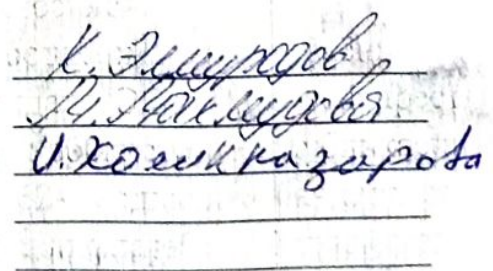 К. Элмуродов
М. Махмудова
И. Холикназарова